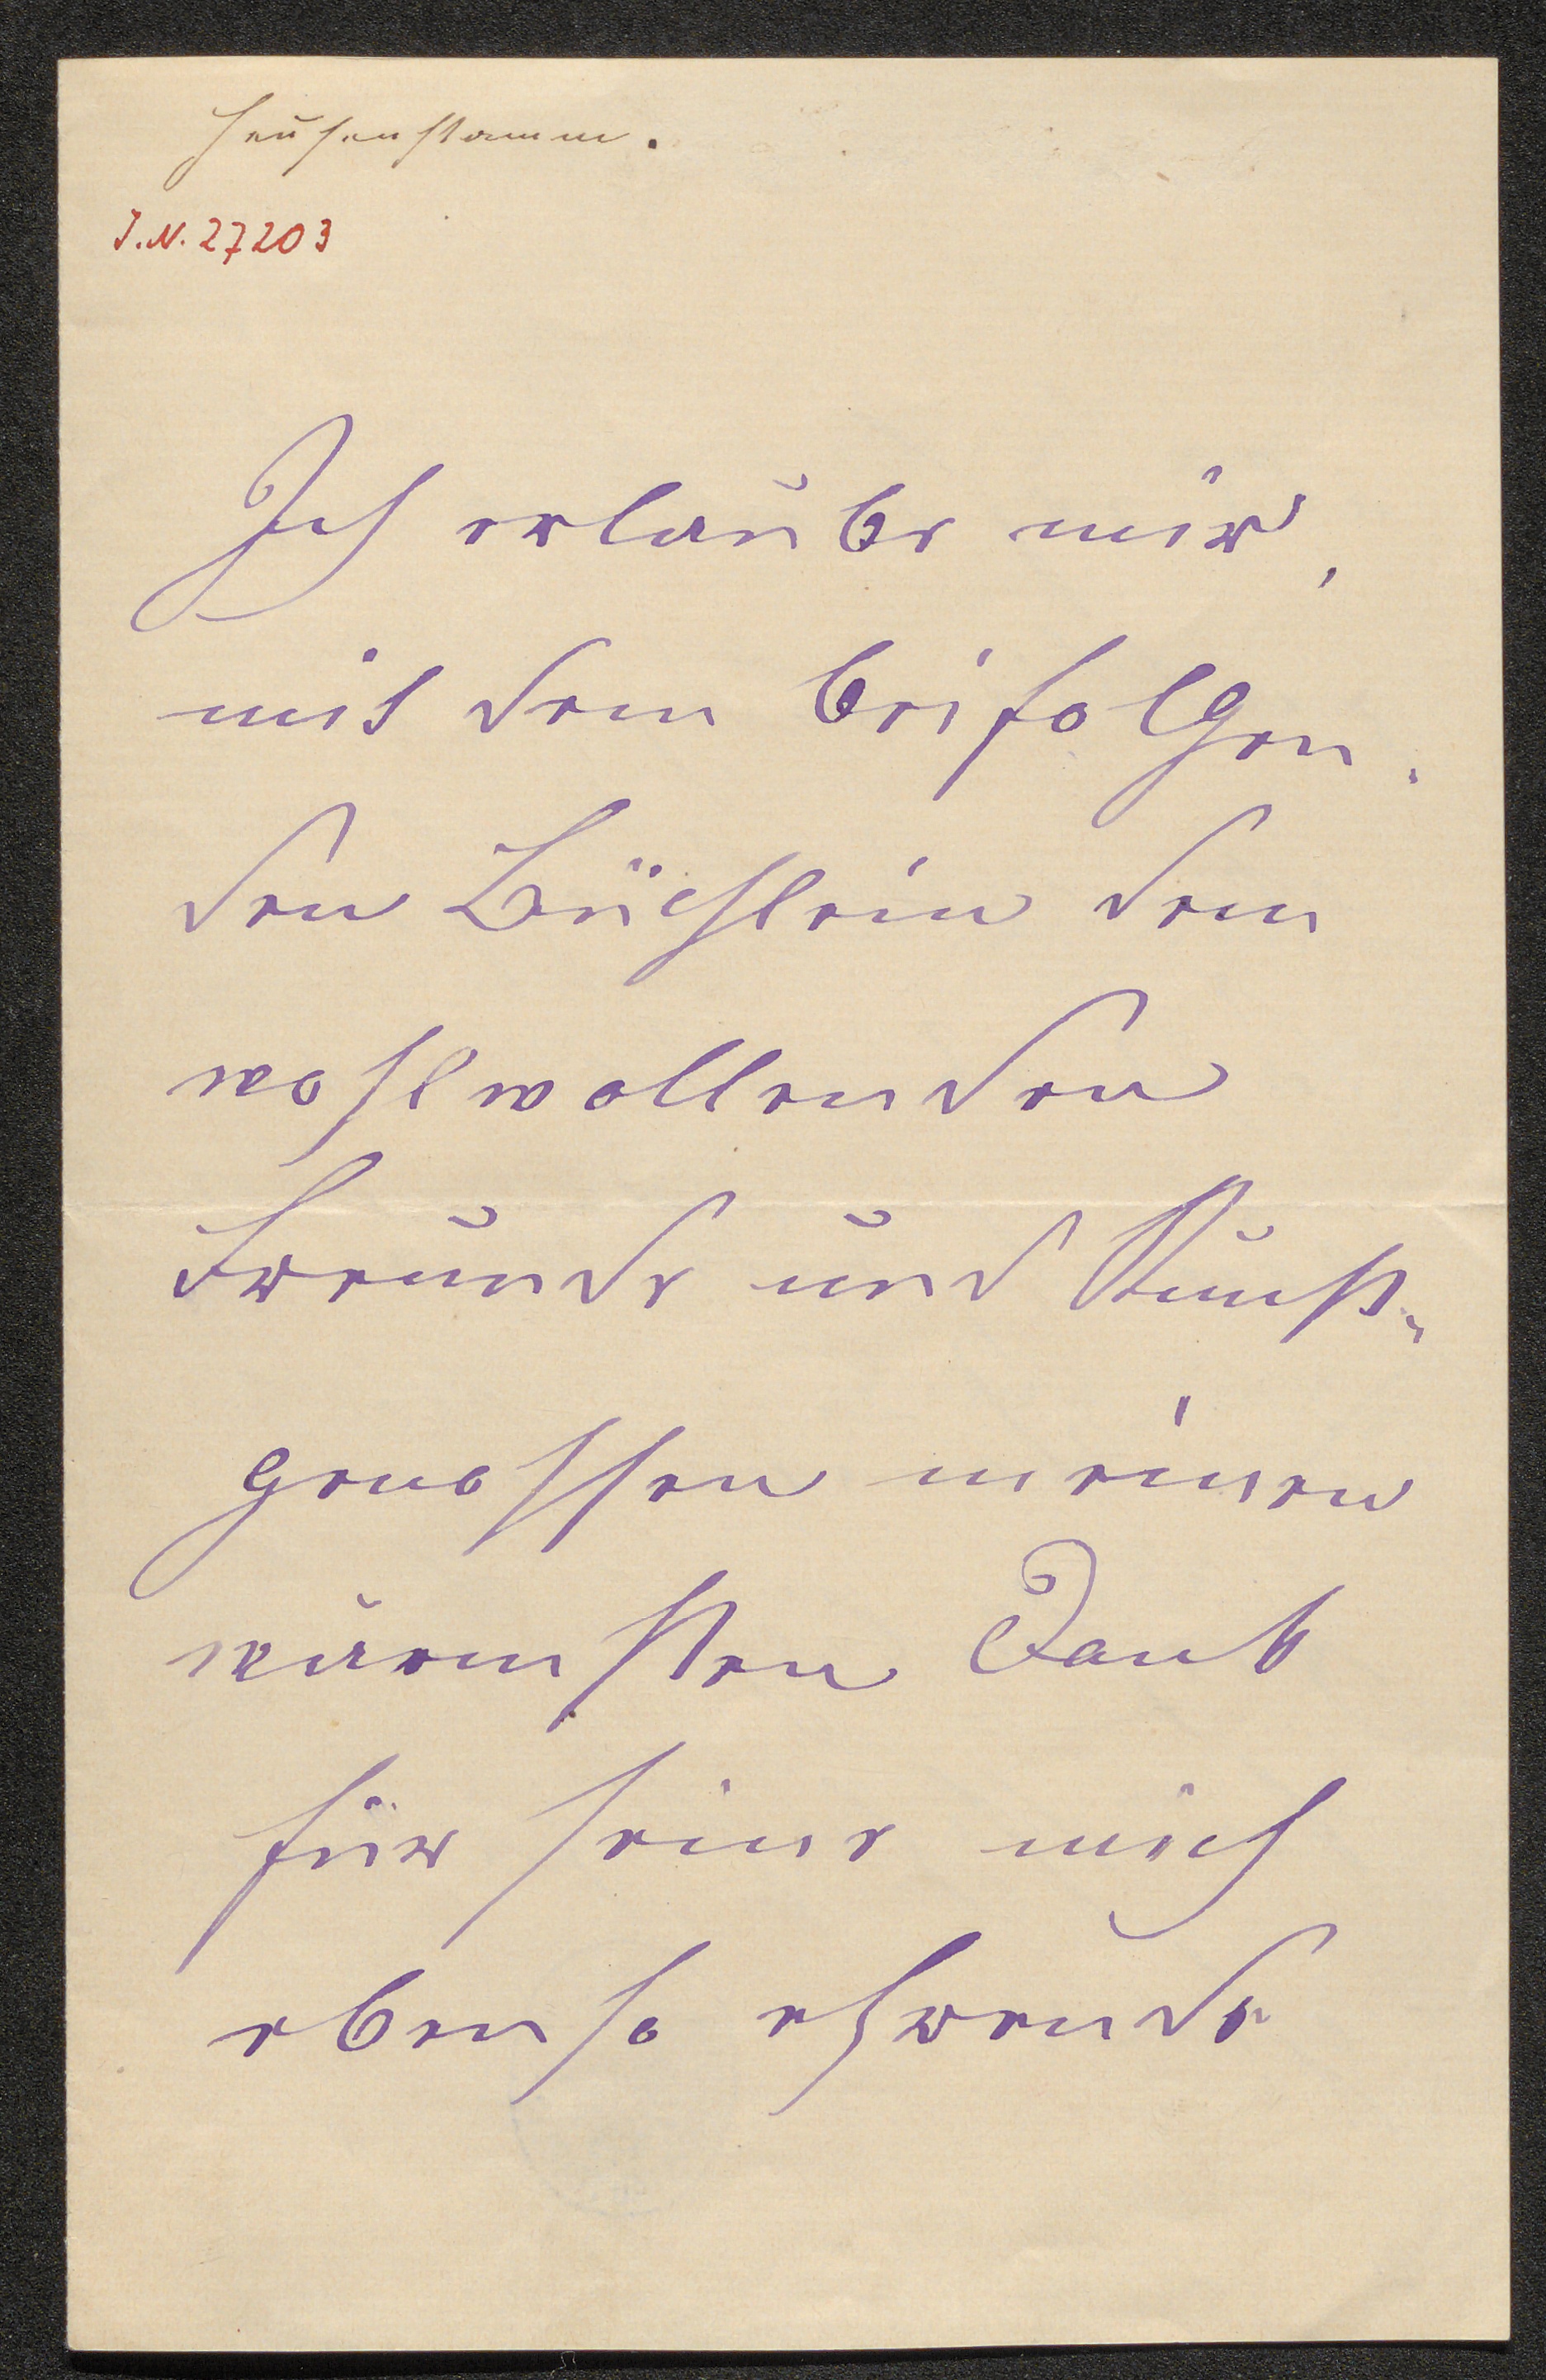 Heusenstamm.
J.N. 27203
Ich erlaube mir,
mit dem beifolgen-
den Büchlein dem
wohlwollenden
Freunde und Kunst-
genossen meinen
wärmsten Dank
für seine mich
ebenso ehrende